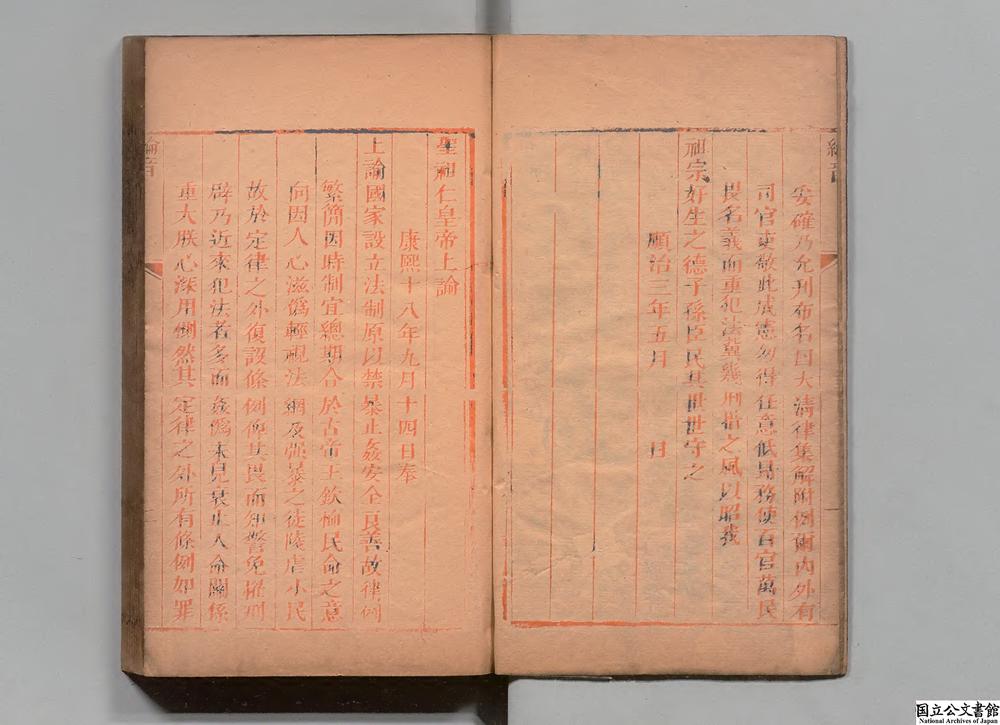 綸音
妥確乃允刋布名曰大清律集解附例爾內外有
司官吏敬此成憲勿得任意低昻務使百官萬民
畏名義而重犯法冀幾刑措之風以昭我
祖宗好生之德子孫臣民其世世守之
順治三年五月　日
聖祖仁皇帝上諭
康熙十八年九月十四日奉
上諭國家設立法制原以禁暴止姦安全良善故律例
繁簡因時制宜總期合於古帝王欽恤民命之意
向因人心滋僞輕視法網及强暴之徒陵虐小民
故於定律之外復設條例俾其畏而知警免罹刑
辟乃近來犯法者多而姦僞未見衰止人命關係
重大朕心深用惻然其定律之外所有條例如罪
綸音
国立公文書館
National Archives of Japan